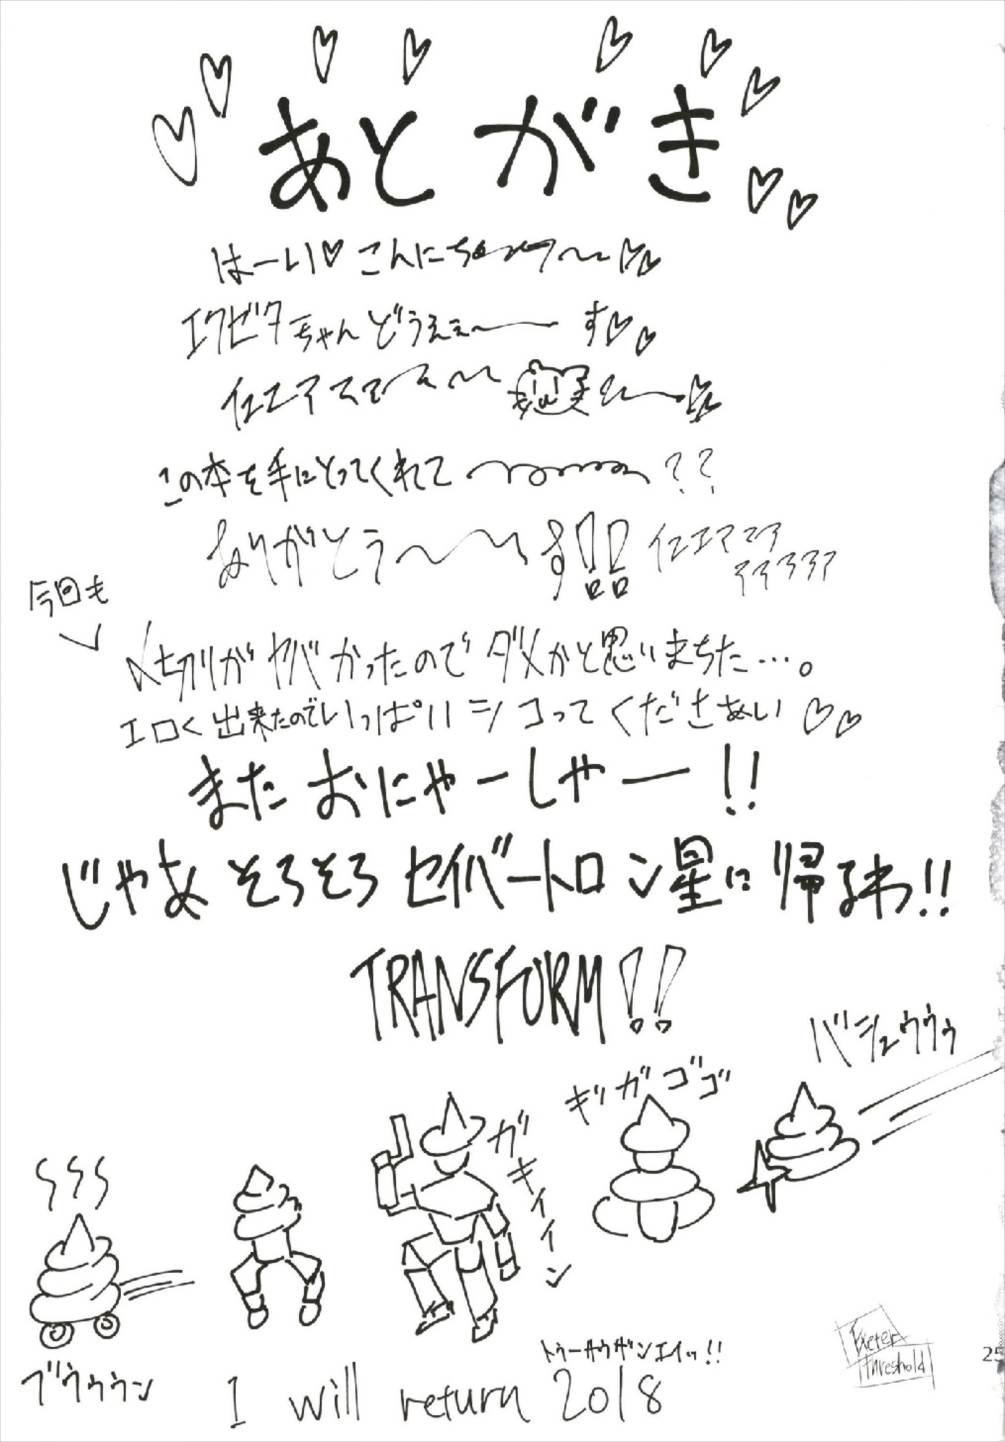 あとがき
はーい♡こんにちゎ〜〜♡♡
エクゼタちゃんどうえぇ〜す♡♡
イェエア
この本を手にとってくれて〜??
ありがとう〜〜!! イェエアアア
アアアアア
今回も
〆切りがヤバかったのでダメかと思いまちた…。
エロく出来たのでいっぱいシコってくださぁい♡♡
またおにゃーしゃー!!
じゃあそろそろセイバートロン星に帰るわ!!
TRANSFORM!!
バシュゥゥゥ
ギガゴゴ
ガキィィィン
ブゥゥゥン
トゥーサウザンエイッ!!
I will return 2018
Exeter
threshold
25